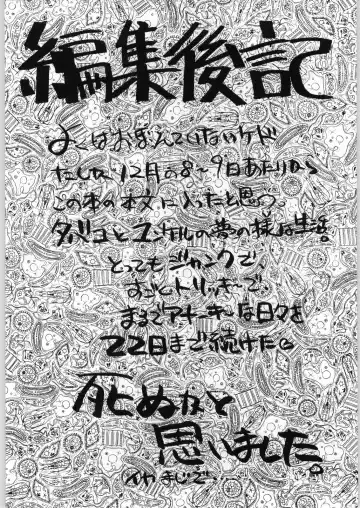 編集後記
よくはおぼえていないケド
たしか12月の8〜9日あたりから
この本の本文に入ったと思う。
タバコとユンケルの夢の様な生活。
とってもジャンクで
すごくトリッキ〜で
まるでアナーキ〜な日々を
22日まで続けた。
死ぬかと
思いました。
イヤまじで…